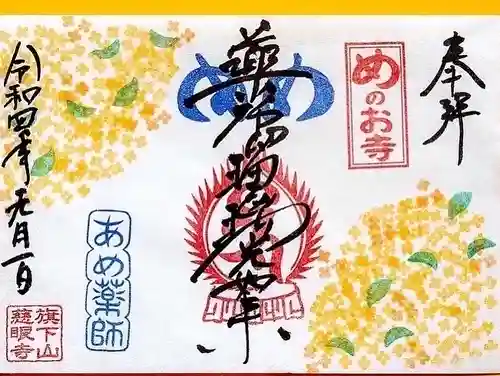 奉拝
めのお寺
め
薬師瑠璃光
令和四年元月一日
あめ薬師
旗下山
慈眼寺